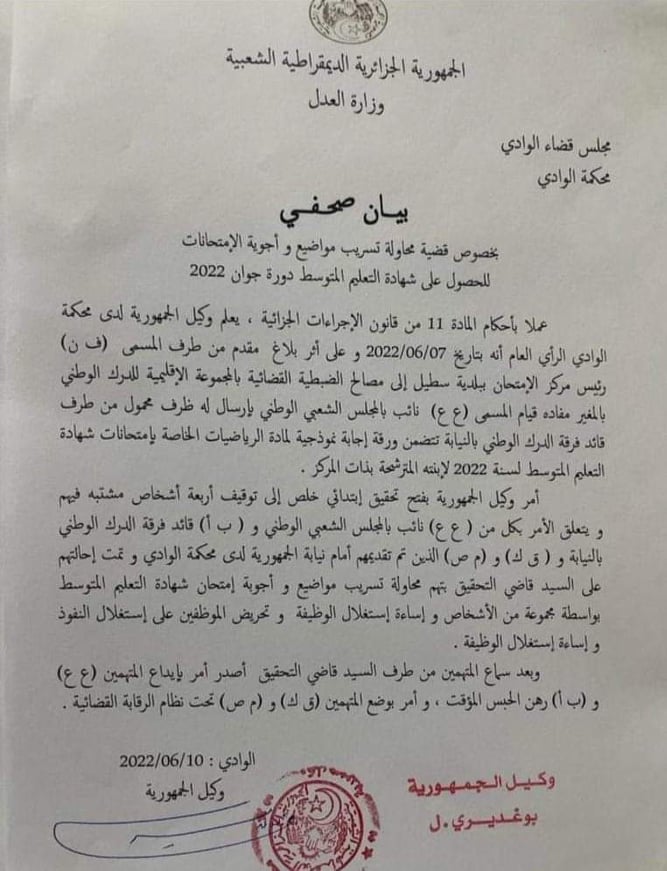 الجمهورية الجزائرية الديمقراطية الشعبية
وزارة العدل
مجلس قضاء الوادي
محكمة الوادي
بيـان صحفـي
بخصوص قضية محاولة تسريب مواضيع و أجوبة الإمتحانات
للحصول على شهادة التعليم المتوسط دورة جوان 2022
عملا بأحكام المادة 11 من قانون الإجراءات الجزائية ، يعلم وكيل الجمهورية لدى محكمة
الوادي الرأي العام أنه بتاريخ 2022/06/07 و على أثر بلاغ مقدم من طرف المسمى (ف ن)
رئيس مركز الإمتحان ببلدية سطيل إلى مصالح الضبطية القضائية بالمجموعة الإقليمية للدرك الوطني
بالمغير مفاده قيام المسمى (ع ع) نائب بالمجلس الشعبي الوطني بإرسال له ظرف محمول من طرف
قائد فرقة الدرك الوطني بالنيابة تتضمن ورقة إجابة نموذجية لمادة الرياضيات الخاصة بإمتحانات شهادة
التعليم المتوسط لسنة 2022 لإبنته المترشحة بذات المركز .
أمر وكيل الجمهورية بفتح تحقيق إبتدائي خلص إلى توقيف أربعة أشخاص مشتبه فيهم
و يتعلق الأمر بكل من ( ع ع) نائب بالمجلس الشعبي الوطني و ( ب أ) قائد فرقة الدرك الوطني
بالنيابة و ( ق ك) و (م ص) الذين تم تقديمهم أمام نيابة الجمهورية لدى محكمة الوادي و تمت إحالتهم
على السيد قاضي التحقيق بتهم محاولة تسريب مواضيع و أجوبة إمتحان شهادة التعليم المتوسط
بواسطة مجموعة من الأشخاص و إساءة إستغلال الوظيفة و تحريض الموظفين على إستغلال النفوذ
و إساءة إستغلال الوظيفة .
وبعد سماع المتهمين من طرف السيد قاضي التحقيق أصدر أمر بإيداع المتهمين (ع ع)
و (ب أ) رهن الحبس المؤقت ، و أمر بوضع المتهمين (ق ك) و (م ص) تحت نظام الرقابة القضائية .
الوادي : 2022/06/10
وكيل الجمهورية
وكيل الجـمهـورية
بوغديري .ل